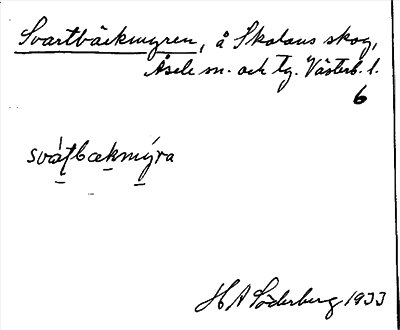 Svartbäckmyren, å Skolans skog,
Åsele sn. och tg. Västerb. l.
6
svártbækmýra
H A Söderberg 1933